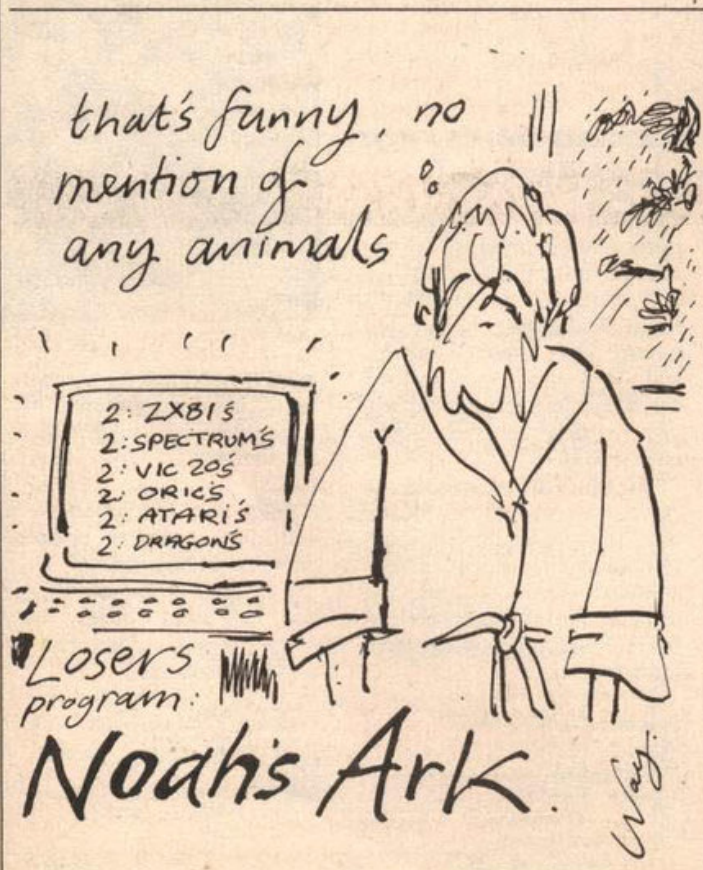 that's funny, no
mention of
any animals
2: ZX81's
2: SPECTRUM'S
2: VIC 20's
2: ORIC'S
2: ATARI'S
2: DRAGON'S
Losers
program:
Noah's Ark.